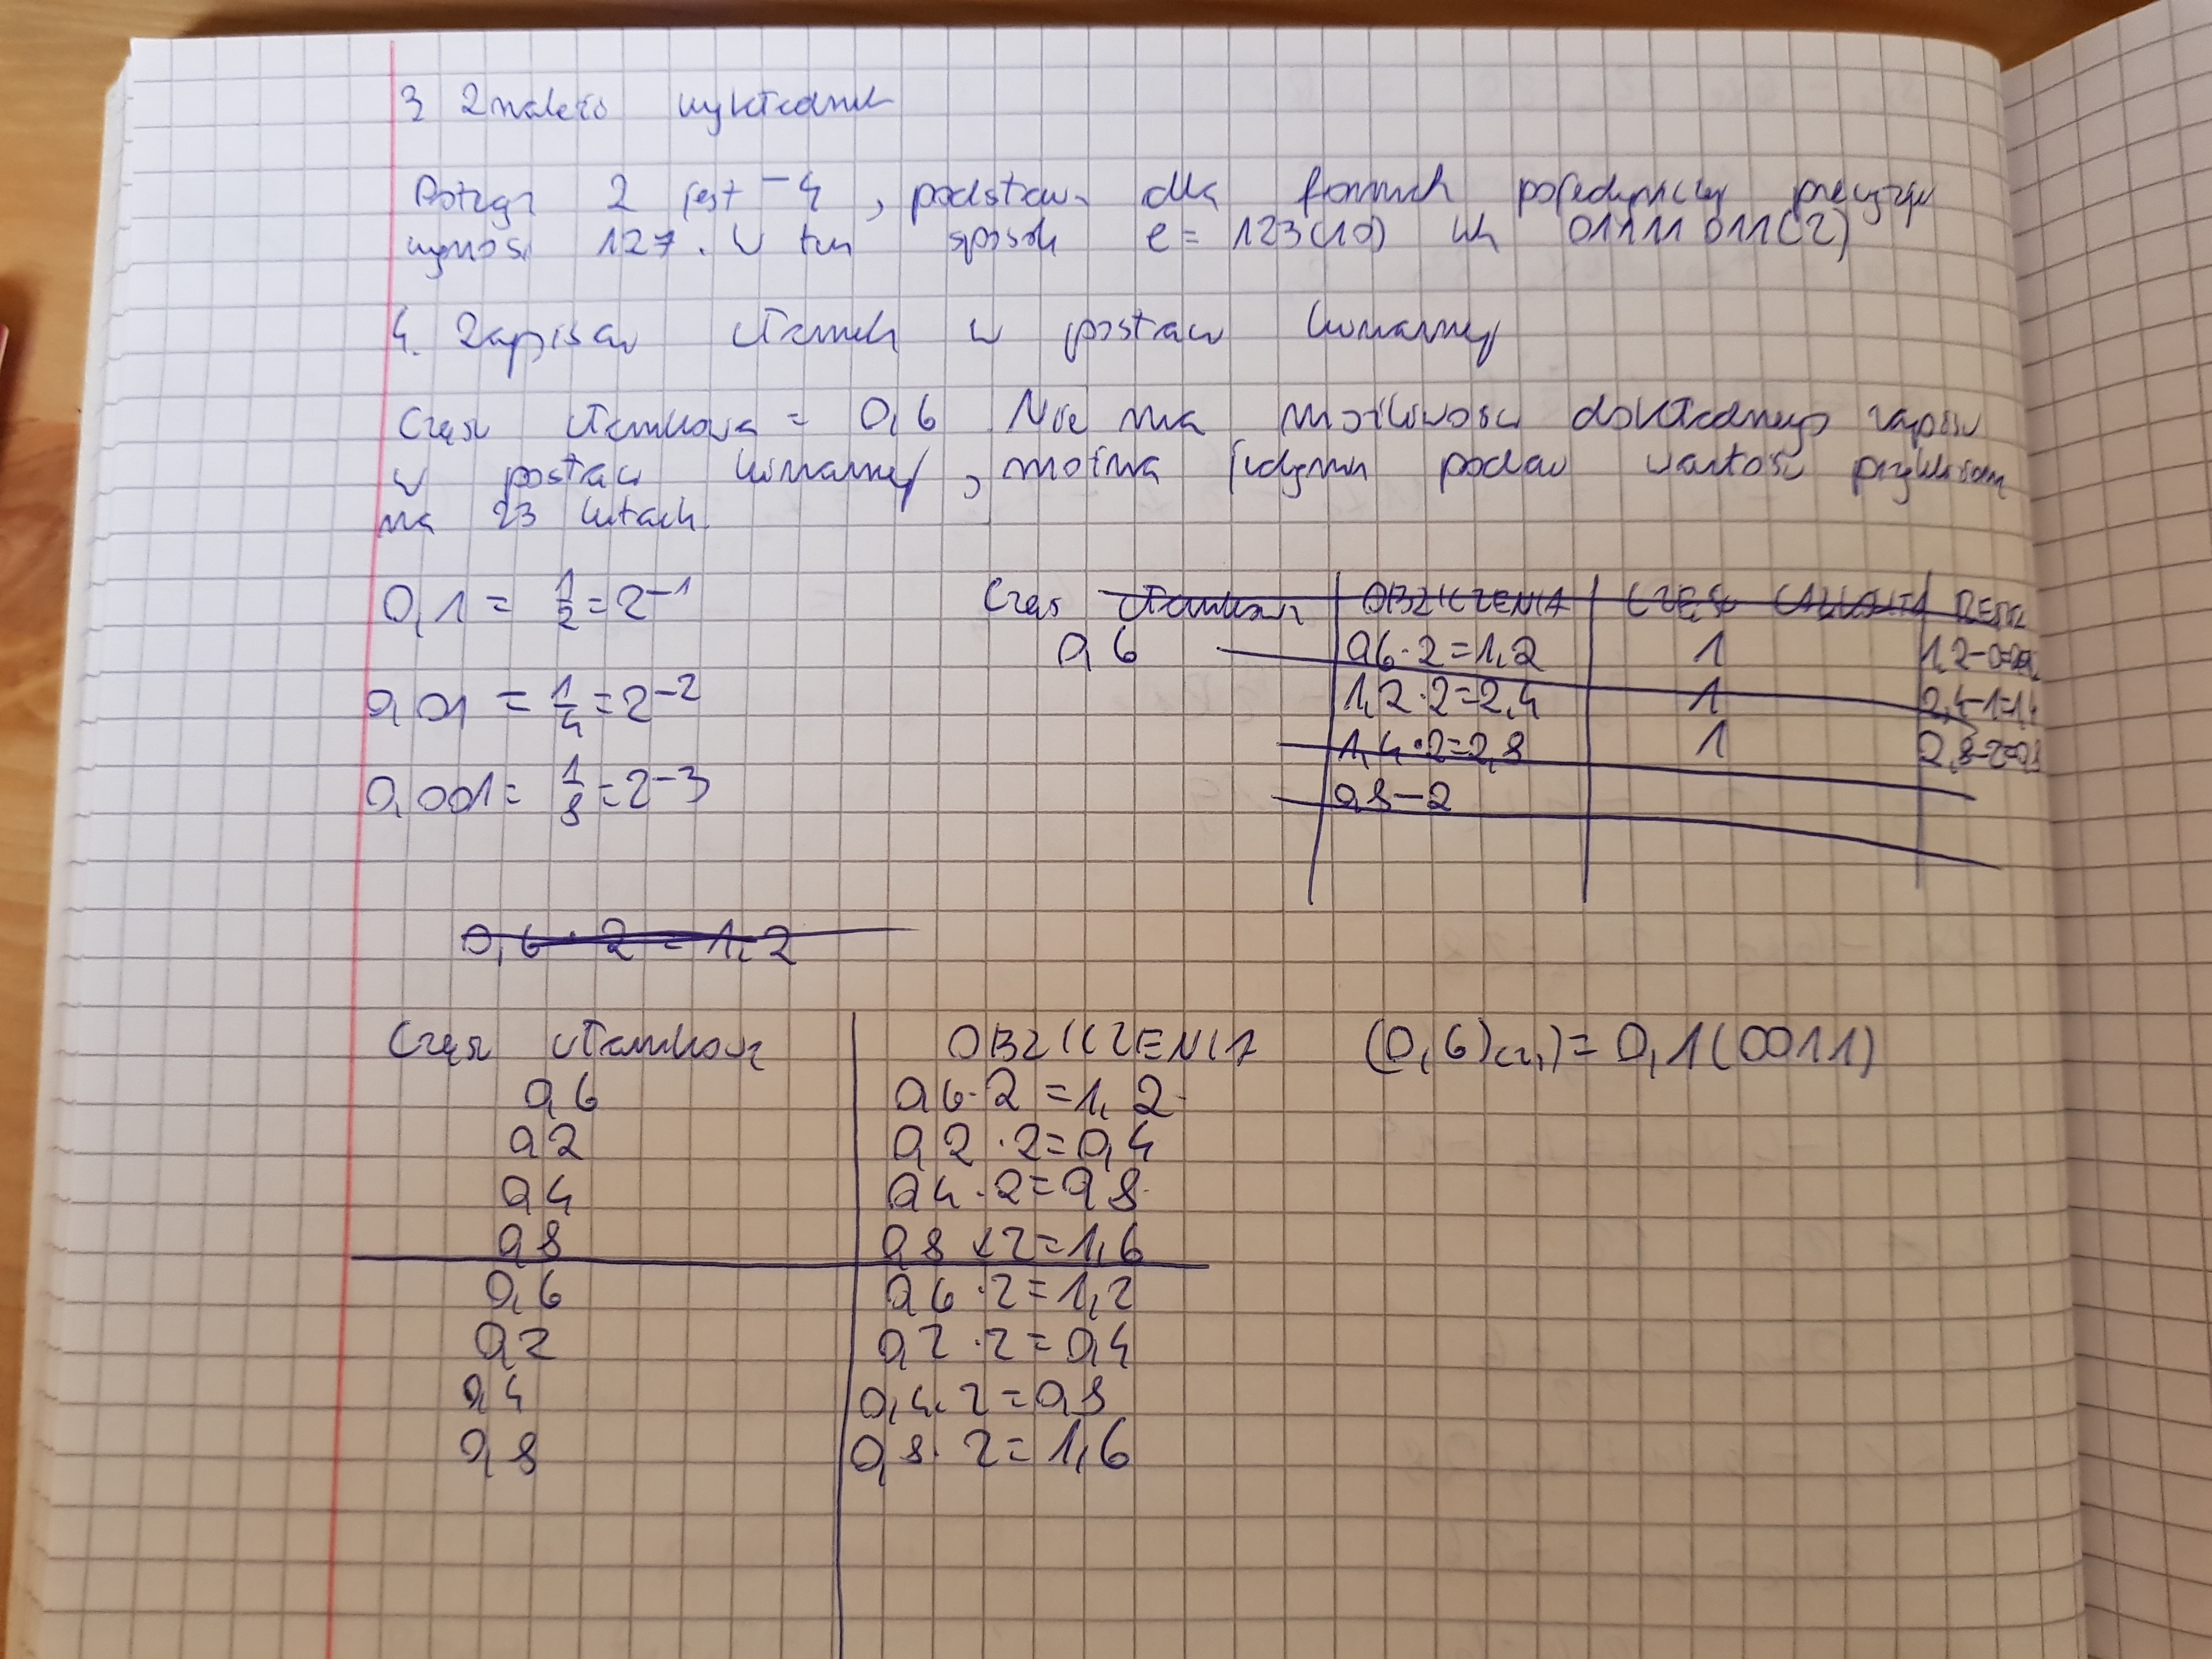 3 Znaleźć wykładnik
Potęga 2 jest -4, podstaw. dla formach pojedynczej precyzji
wynosi 127. W ten sposób e = 123(10) lub 01111011(2)
4. Zapisać ułamek w postaci binarnej
Część ułamkowa = 0,6 Nie ma możliwości dokładnego zapisu
w postaci binarnej, można jedynie podać wartość przybliżoną
na 23 bitach.
0,1 = 1/2 = 2-1
0,01 = 1/4 = 2-2
0,001 = 1/8 = 2-3
Część ułamkowa OBLICZENIA CZĘŚĆ CAŁKOWITA RESZTA
0,6 0,6·2=1,2 1
1,2·2=2,4 1 2,4-1=1,4
1,4·2=2,8 1
0,8-2
0,6·2=1,2
Część ułamkowa OBLICZENIA (0,6)(10)=0,1(0011)
0,6 0,6·2=1,2
0,2 0,2·2=0,4
0,4 0,4·2=0,8
0,8 0,8·2=1,6
0,6 0,6·2=1,2
0,2 0,2·2=0,4
0,4 0,4·2=0,8
0,8 0,8·2=1,6